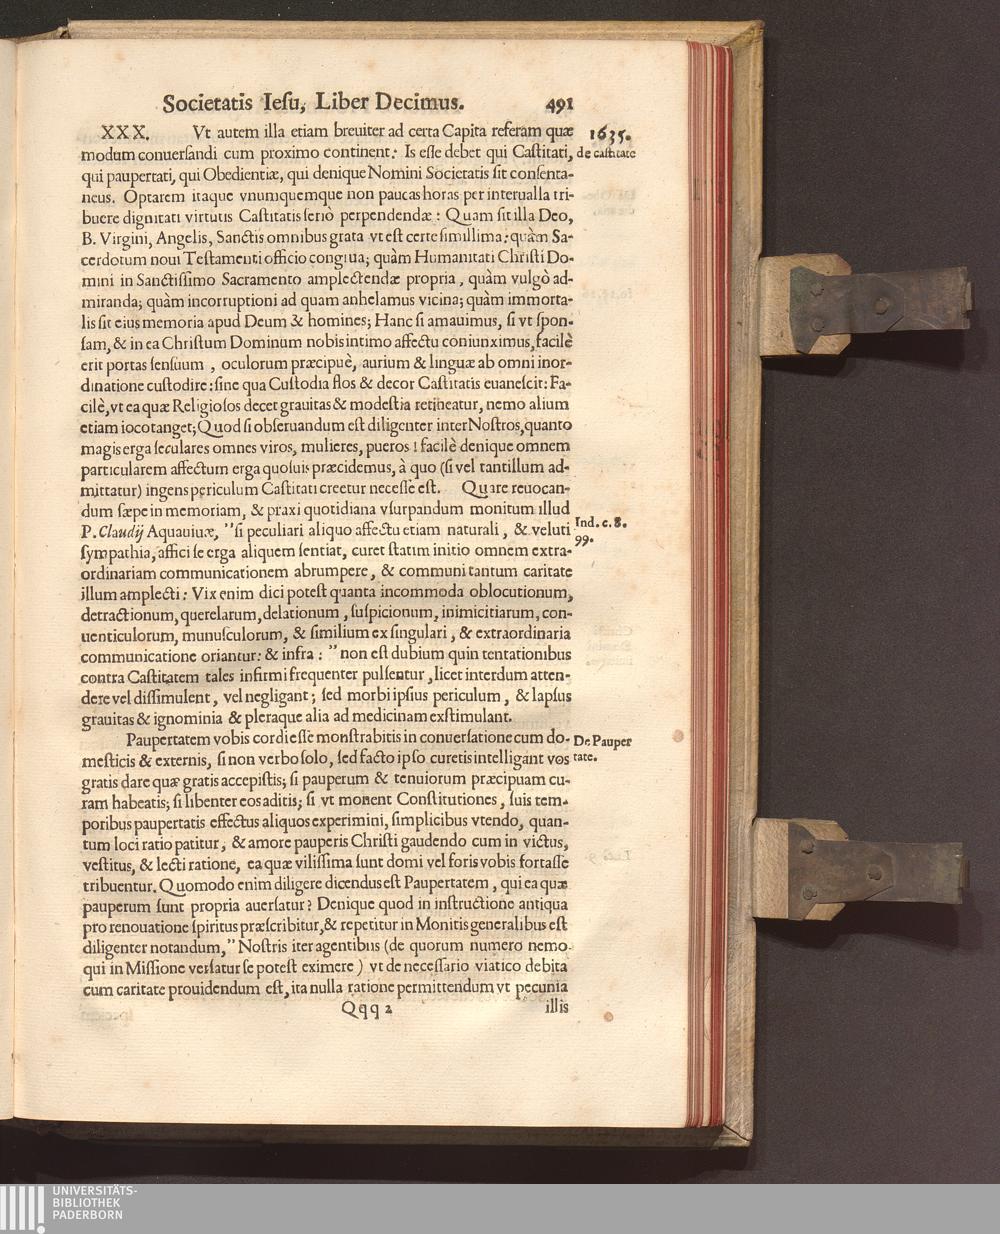 Societatis Iesu, Liber Decimus. 491
XXX. Vt autem illa etiam breuiter ad certa Capita referam quæ 1635.
modum conuersandi cum proximo continent: Is esse debet qui Castitati, de castitate
qui paupertati, qui Obedientiæ, qui denique Nomini Societatis sit consenta-
neus. Optarem itaque vnumquemque non paucas horas per interualla tri-
buere dignitati virtutis Castitatis seriò perpendendæ: Quam sit illa Deo,
B. Virgini, Angelis, Sanctis omnibus grata vt est certe simillima: quàm Sa-
cerdotum noui Testamenti officio congrua; quàm Humanitati Christi Do-
mini in Sanctissimo Sacramento amplectendæ propria, quàm vulgò ad-
miranda; quàm incorruptioni ad quam anhelamus vicina; quàm immorta-
lis sit eius memoria apud Deum & homines; Hanc si amauimus, si vt spon-
sam, & in ea Christum Dominum nobis intimo affectu coniunximus, facilè
erit portas sensuum, oculorum præcipuè, aurium & linguæ ab omni inor-
dinatione custodire: sine qua Custodia flos & decor Castitatis euanescit: Fa-
cilè, vt ea quæ Religiosos decet grauitas & modestia retineatur, nemo alium
etiam ioco tanget; Quod si obseruandum est diligenter inter Nostros, quanto
magis erga seculares omnes viros, mulieres, pueros! facilè denique omnem
particularem affectum erga quosuis præcidemus, à quo (si vel tantillum ad-
mittatur) ingens periculum Castitati creetur necesse est. Quare reuocan-
dum sæpe in memoriam, & praxi quotidiana vsurpandum monitum illud
P. Claudij Aquauiuæ, "si peculiari aliquo affectu etiam naturali, & veluti Ind. c. 8.
sympathia, affici se erga aliquem sentiat, curet statim initio omnem extra- 99.
ordinariam communicationem abrumpere, & communi tantum caritate
illum amplecti: Vix enim dici potest quanta incommoda oblocutionum,
detractionum, querelarum, delationum, suspicionum, inimicitiarum, con-
uenticulorum, munusculorum, & similium ex singulari, & extraordinaria
communicatione oriantur: & infra: " non est dubium quin tentationibus
contra Castitatem tales infirmi frequenter pulsentur, licet interdum atten-
dere vel dissimulent, vel negligant; sed morbi ipsius periculum, & lapsus
grauitas & ignominia & pleraque alia ad medicinam exstimulant.
Paupertatem vobis cordi esse monstrabitis in conuersatione cum do- De Pauper
mesticis & externis, si non verbo solo, sed facto ipso curetis intelligant vos tate.
gratis dare quæ gratis accepistis; si pauperum & tenuiorum præcipuam cu-
ram habeatis; si libenter eos aditis; si vt monent Constitutiones, suis tem-
poribus paupertatis effectus aliquos experimini, simplicibus vtendo, quan-
tum loci ratio patitur, & amore pauperis Christi gaudendo cum in victus,
vestitus, & lecti ratione, ea quæ vilissima sunt domi vel foris vobis fortasse
tribuentur. Quomodo enim diligere dicendus est Paupertatem, qui ea quæ
pauperum sunt propria auersatur? Denique quod in instructione antiqua
pro renouatione spiritus præscribitur, & repetitur in Monitis generalibus est
diligenter notandum, " Nostris iter agentibus (de quorum numero nemo
qui in Missione versatur se potest eximere) vt de necessario viatico debita
cum caritate prouidendum est, ita nulla ratione permittendum vt pecunia
Qqq 2 illis
UNIVERSITÄTS-
BIBLIOTHEK
PADERBORN